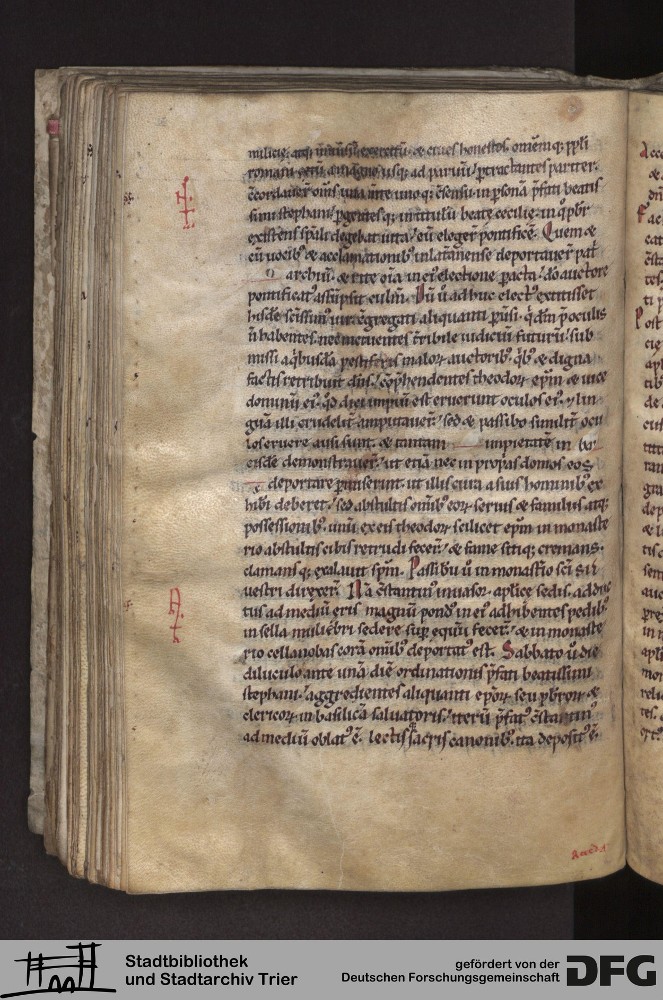 milicię; atq; uniuersū exercitū· & ciues honestos, omēmq; ppli
romani cetū a magno usq; ad paruū/ ptractantes pariter·
c̄cordauer̄ om̄s una m̄te unoq; c̄sensu in psonā p̄fati beatis
simi stephani/ pgentesq; in titulū beatę cecilię· in q̇ pbr
existens spāli degebat uita/ eū eleger̄ pontificē. Quem &
cū uocib; & acclamationib; in lat̄anense deportauer̄ pat
archiū· & rite om̄a in ei; electione pacta/ dō auctore
pontificat; assūpsit culm̄. Dū ū adhuc elect; extitisset
hisdē sc̄issim; uir· c̄gregati aliquanti puersi· q; dm̄ p oculis
n̄ habentes· nec metuentes t̄ribile iudiciū futurū/ sub
missi a q̇busdā pestiferis malor auctorib; q̇b; & digna
factis retribuit dn̄s/ cōphendentes theodor epm̄ & uice
dominū ei; q̇d dici impiū est eruerunt oculos ei; & lin
guā illi crudelit̄ amputauer̄/ sed & passibo similit̄ ocu
los eruere ausi sunt· & tantam impietatē in
eisdē demonstrauer̄/ ut etiā nec in ppias domos eos
deportare pmiserint· ut illis cura a suis hominib; ex
hiberi deberet/ sed abstultis omīb; eor seruis & famulis atq;
possessionib; unū ex eis theodor scilicet epm̄ in monaste
rio abstultis cibis retrudi fecer̄/ & fame sitiq; cremans·
clamansq; exalauit spm̄. Passibū ū in monasterio sc̄i sil
uestri direxer̄. Nā c̄stantin; inuasor aplice sedis· adduc
tus ad mediū eris magnū pond; in ei; adhibentes pedib;
in sella muliebri sedere sup equū fecer̄/ & in monaste
rio cellanobas corā omīb; deportat; est. Sabbato ū die
diluculo ante unā diē ordinationis p̄fati beatissimi
stephani/ aggredientes aliquanti epor seu pbror &
clericor in basilicā saluatoris/ iterū p̄fat; c̄stantin;
ad mediū oblat; ē. lectis sacris canonib; ita deposit; ē.
Stadtbibliothek
und Stadtarchiv Trier
gefördert von der
Deutschen Forschungsgemeinschaft
DFG